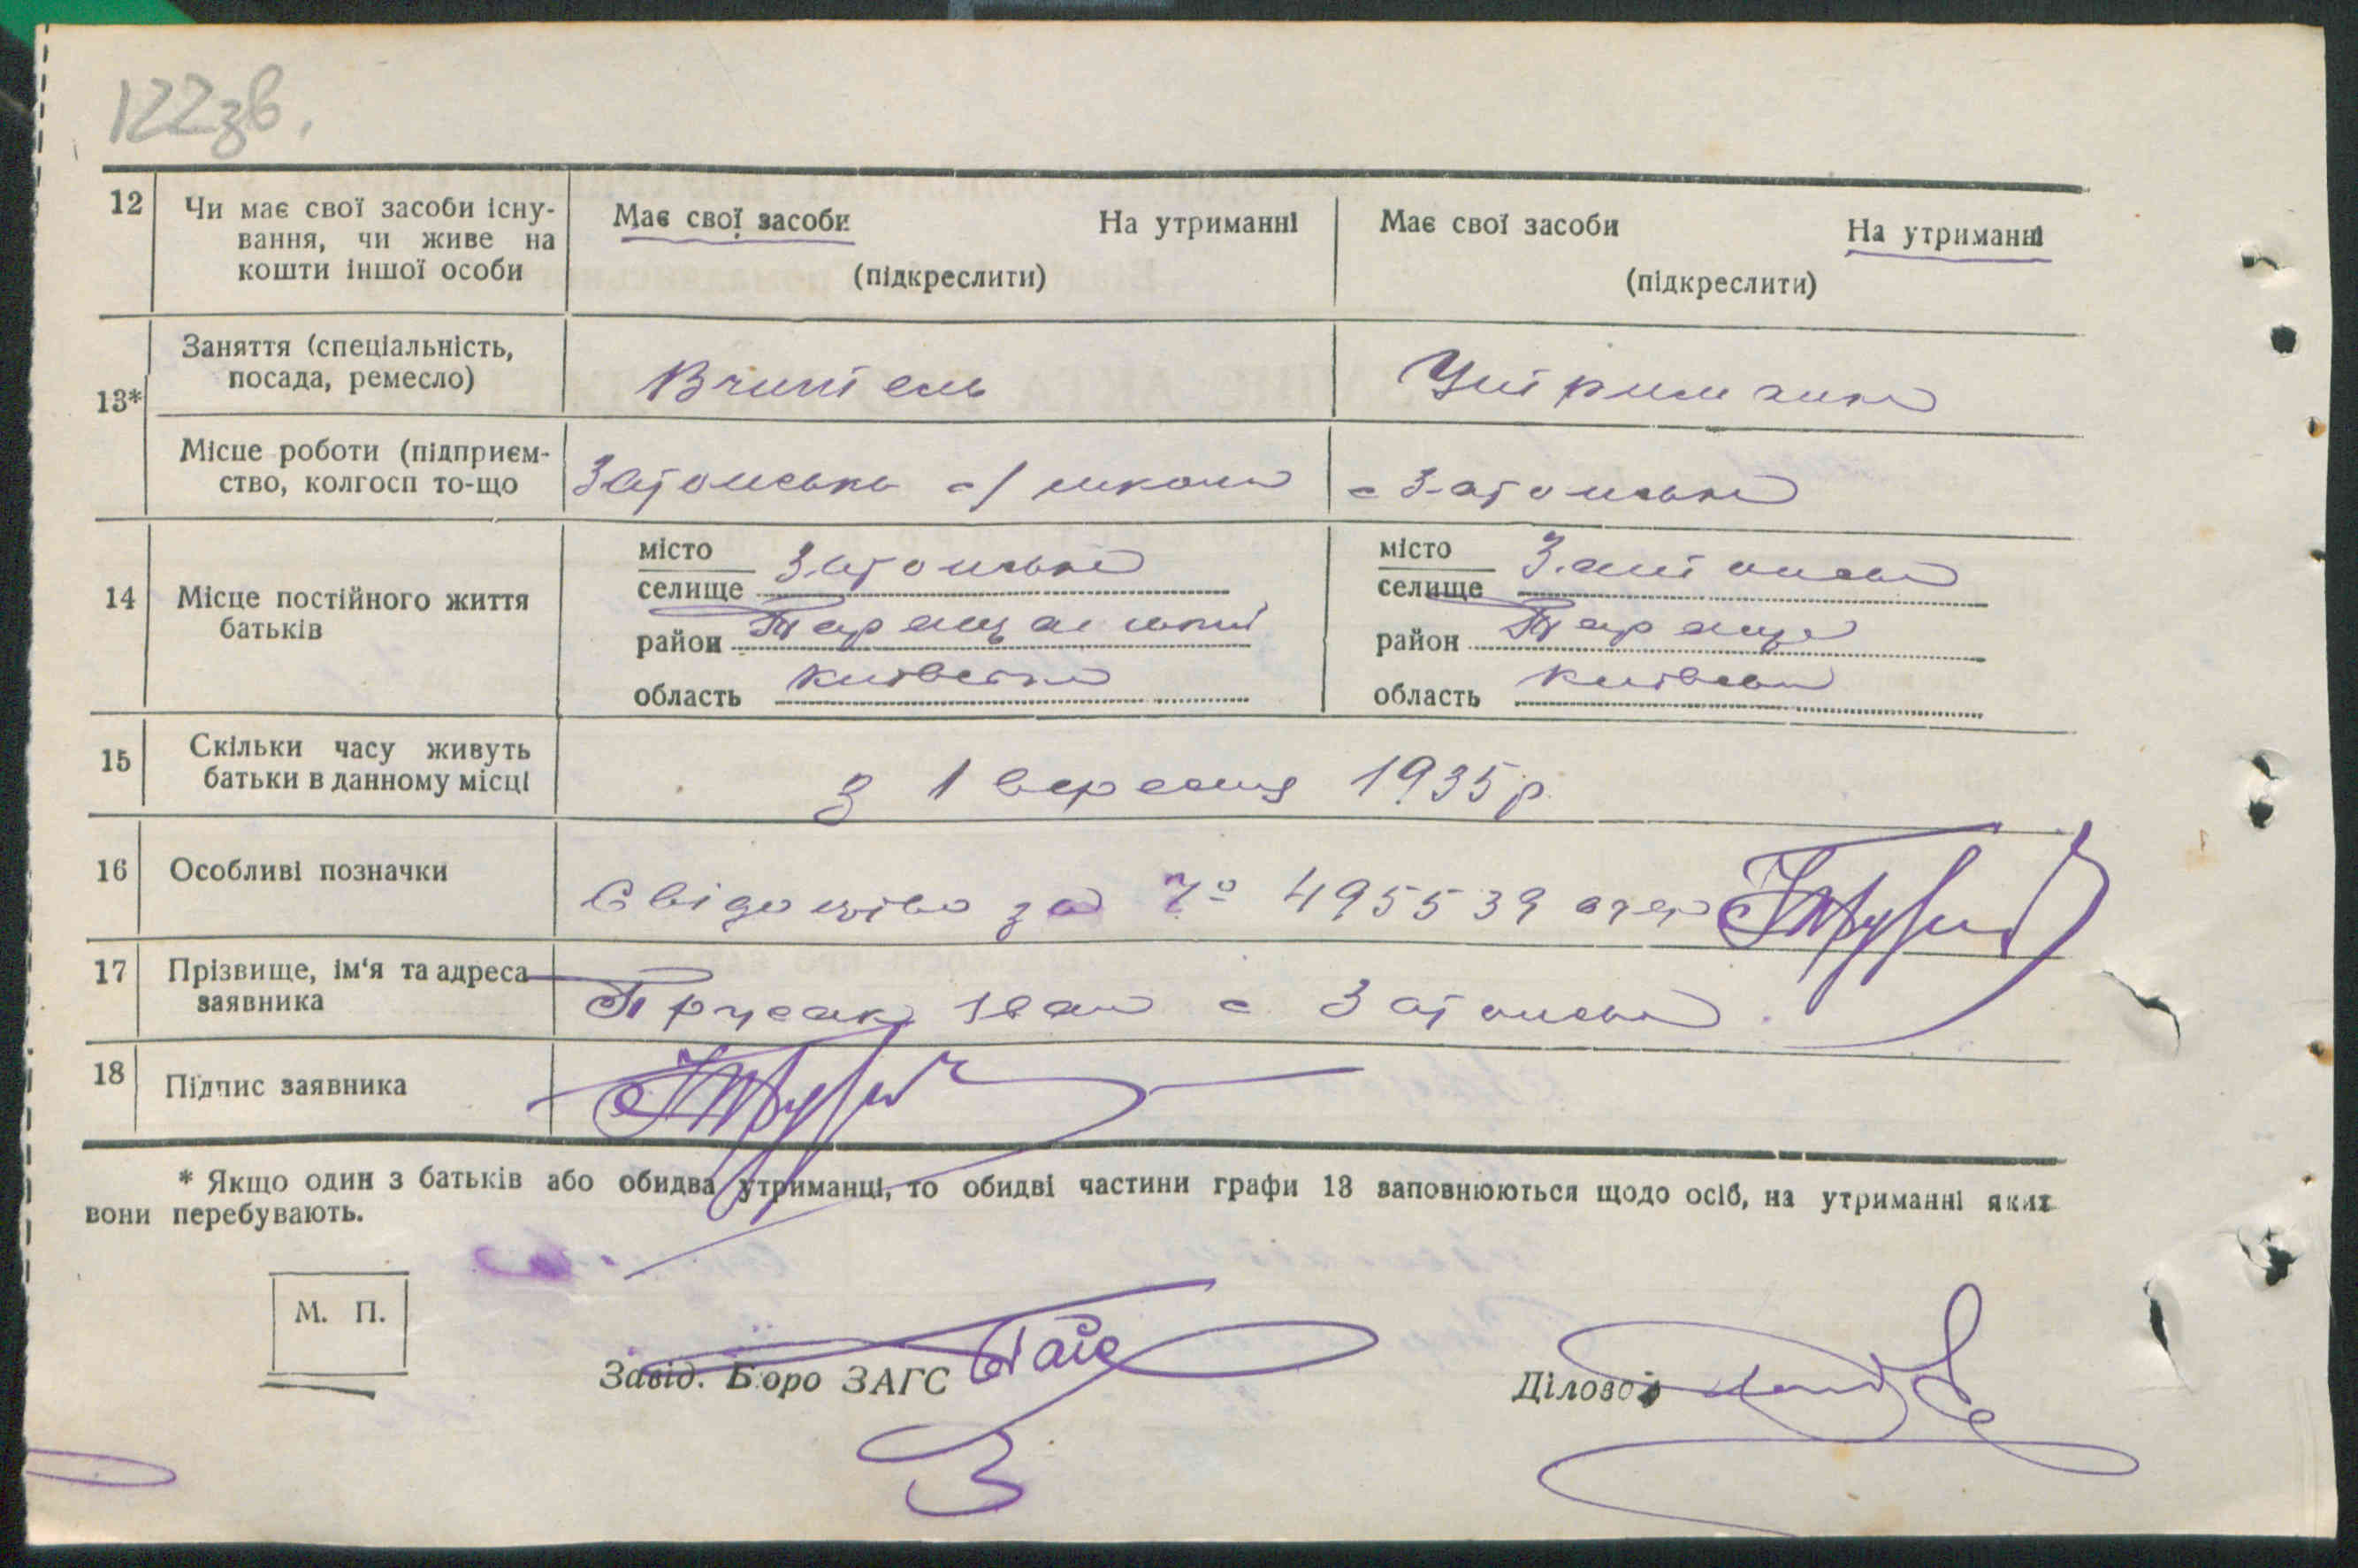 122зв.
12 Чи має свої засоби існу-
вання, чи живе на
кошти іншої особи
Має свої засоби На утриманні
(підкреслити)
Має свої засоби На утриманні
(підкреслити)
13*
Заняття (спеціальність,
посада, ремесло)
Вчитель
Утриманка
Місце роботи (підприєм-
ство, колгосп то-що
школа
14 Місце постійного життя
батьків
місто
селище
район Таращанський
область Київська
місто
селище
район Тараща
область Київська
15 Скільки часу живуть
батьки в данному місці
З 1 вересня 1935 р.
16 Особливі позначки
Свідоцтво за № 495539
17 Прізвище, ім'я та адреса
заявника
Трусак Іван с
18 Підпис заявника
* Якщо один з батьків або обидва утриманці, то обидві частини графи 13 заповнюються щодо осіб, на утриманні яких
вони перебувають.
М. П.
Завід. Бюро ЗАГС
Діловод